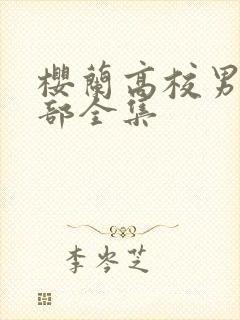 櫻蘭高校男
部全集
李岑芝